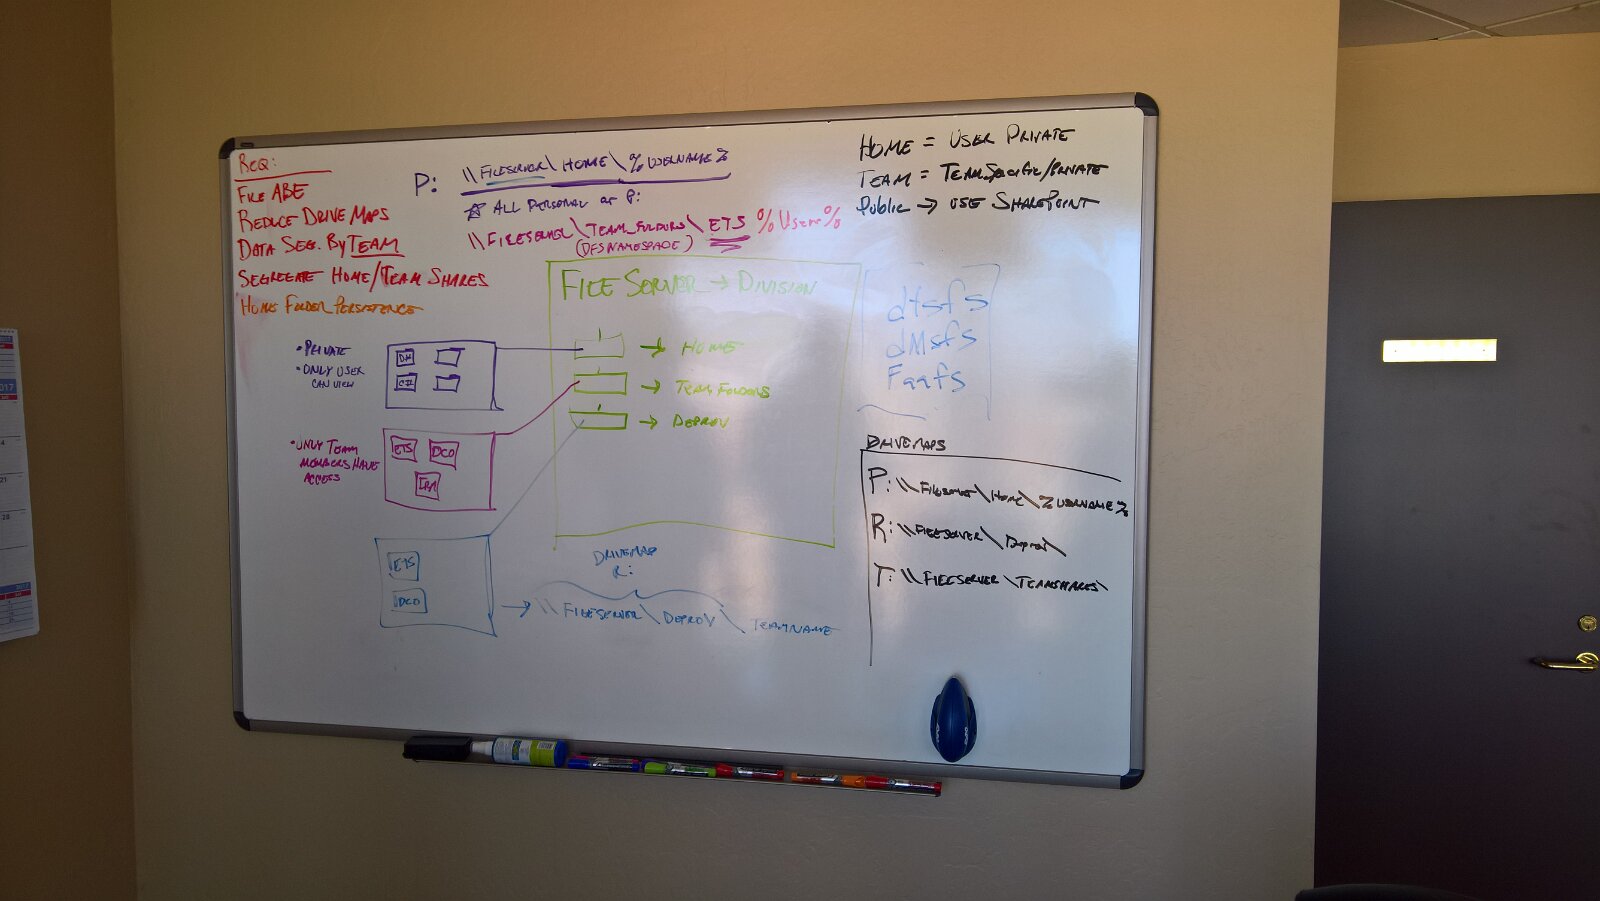 REQ:
FILE ABE
REDUCE DRIVE MAPS
DATA SEG. BY TEAM
SEGREGATE HOME/TEAM SHARES
HOME FOLDER PERSISTENCE
P: \\FILESERVER\HOME\%USERNAME%
ALL PERSONAL P:
\\FILESERVER\TEAM_FOLDERS\ETS %User%
(DFS NAMESPACE)
HOME = USER PRIVATE
TEAM = TEAM SPECIFIC/PRIVATE
Public → USE SHAREPOINT
FILE SERVER → DIVISION
→ HOME
→ TEAM FOLDERS
→ DEPROV
dtsfs
dMsfs
Faafs
• PRIVATE
• ONLY USER
CAN VIEW
• ONLY TEAM
MEMBERS HAVE
ACCESS
ETS
DCO
ETS
DCO
DRIVEMAP
R:
→ \\FILESERVER\DEPROV\TEAMNAME
DRIVEMAPS
P: \\FILESERVER\HOME\%USERNAME%
R: \\FILESERVER\DEPROV\
T: \\FILESERVER\TEAMSHARES\
2017